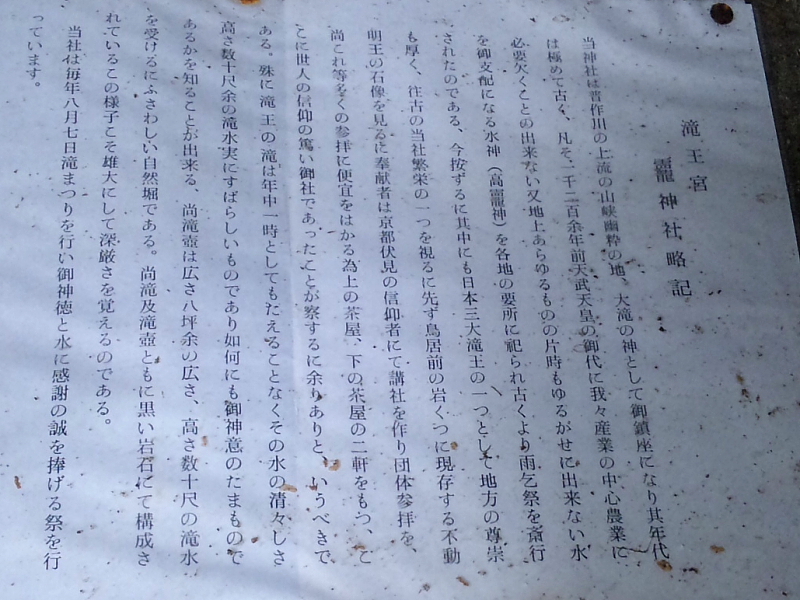 滝王宮
龗神社略記
当神社は普作川の上流の山峡幽粋の地、大滝の神として御鎮座になり其年代
は極めて古く、凡そ一千二百余年前天武天皇の御代に我々産業の中心農業に
必要欠くことの出来ない又地上あらゆるものの片時もゆるがせに出来ない水
を御支配になる水神(高龗神)を各地の要所に祀られ古くより雨乞祭を斎行
されたのである、今按ずるに其中にも日本三大滝王の一つとして地方の尊崇
も厚く、往古の当社繁栄の一つを視るに先ず鳥居前の岩くつに現存する不動
明王の石像を見るに奉献者は京都伏見の信仰者にて講社を作り団体参拝を、
尚これ等多くの参拝に便宜をはかる為上の茶屋、下の茶屋の二軒をもつ、こ
こに世人の信仰の篤い御社であったことが察するに余りありと、いうべきで
ある。殊に滝王の滝は年中一時としてもたえることなくその水の清々しさ
高さ数十尺余の滝水実にすばらしいものであり如何にも御神意のたまもので
あるかを知ることが出来る、尚滝壺は広さ八坪余の広さ、高さ数十尺の滝水
を受けるにふさわしい自然堀である。尚滝及滝壺ともに黒い岩石にて構成さ
れているこの様子こそ雄大にして深厳さを覚えるのである。
当社は毎年八月七日滝まつりを行い御神徳と水に感謝の誠を捧げる祭を行
っています。